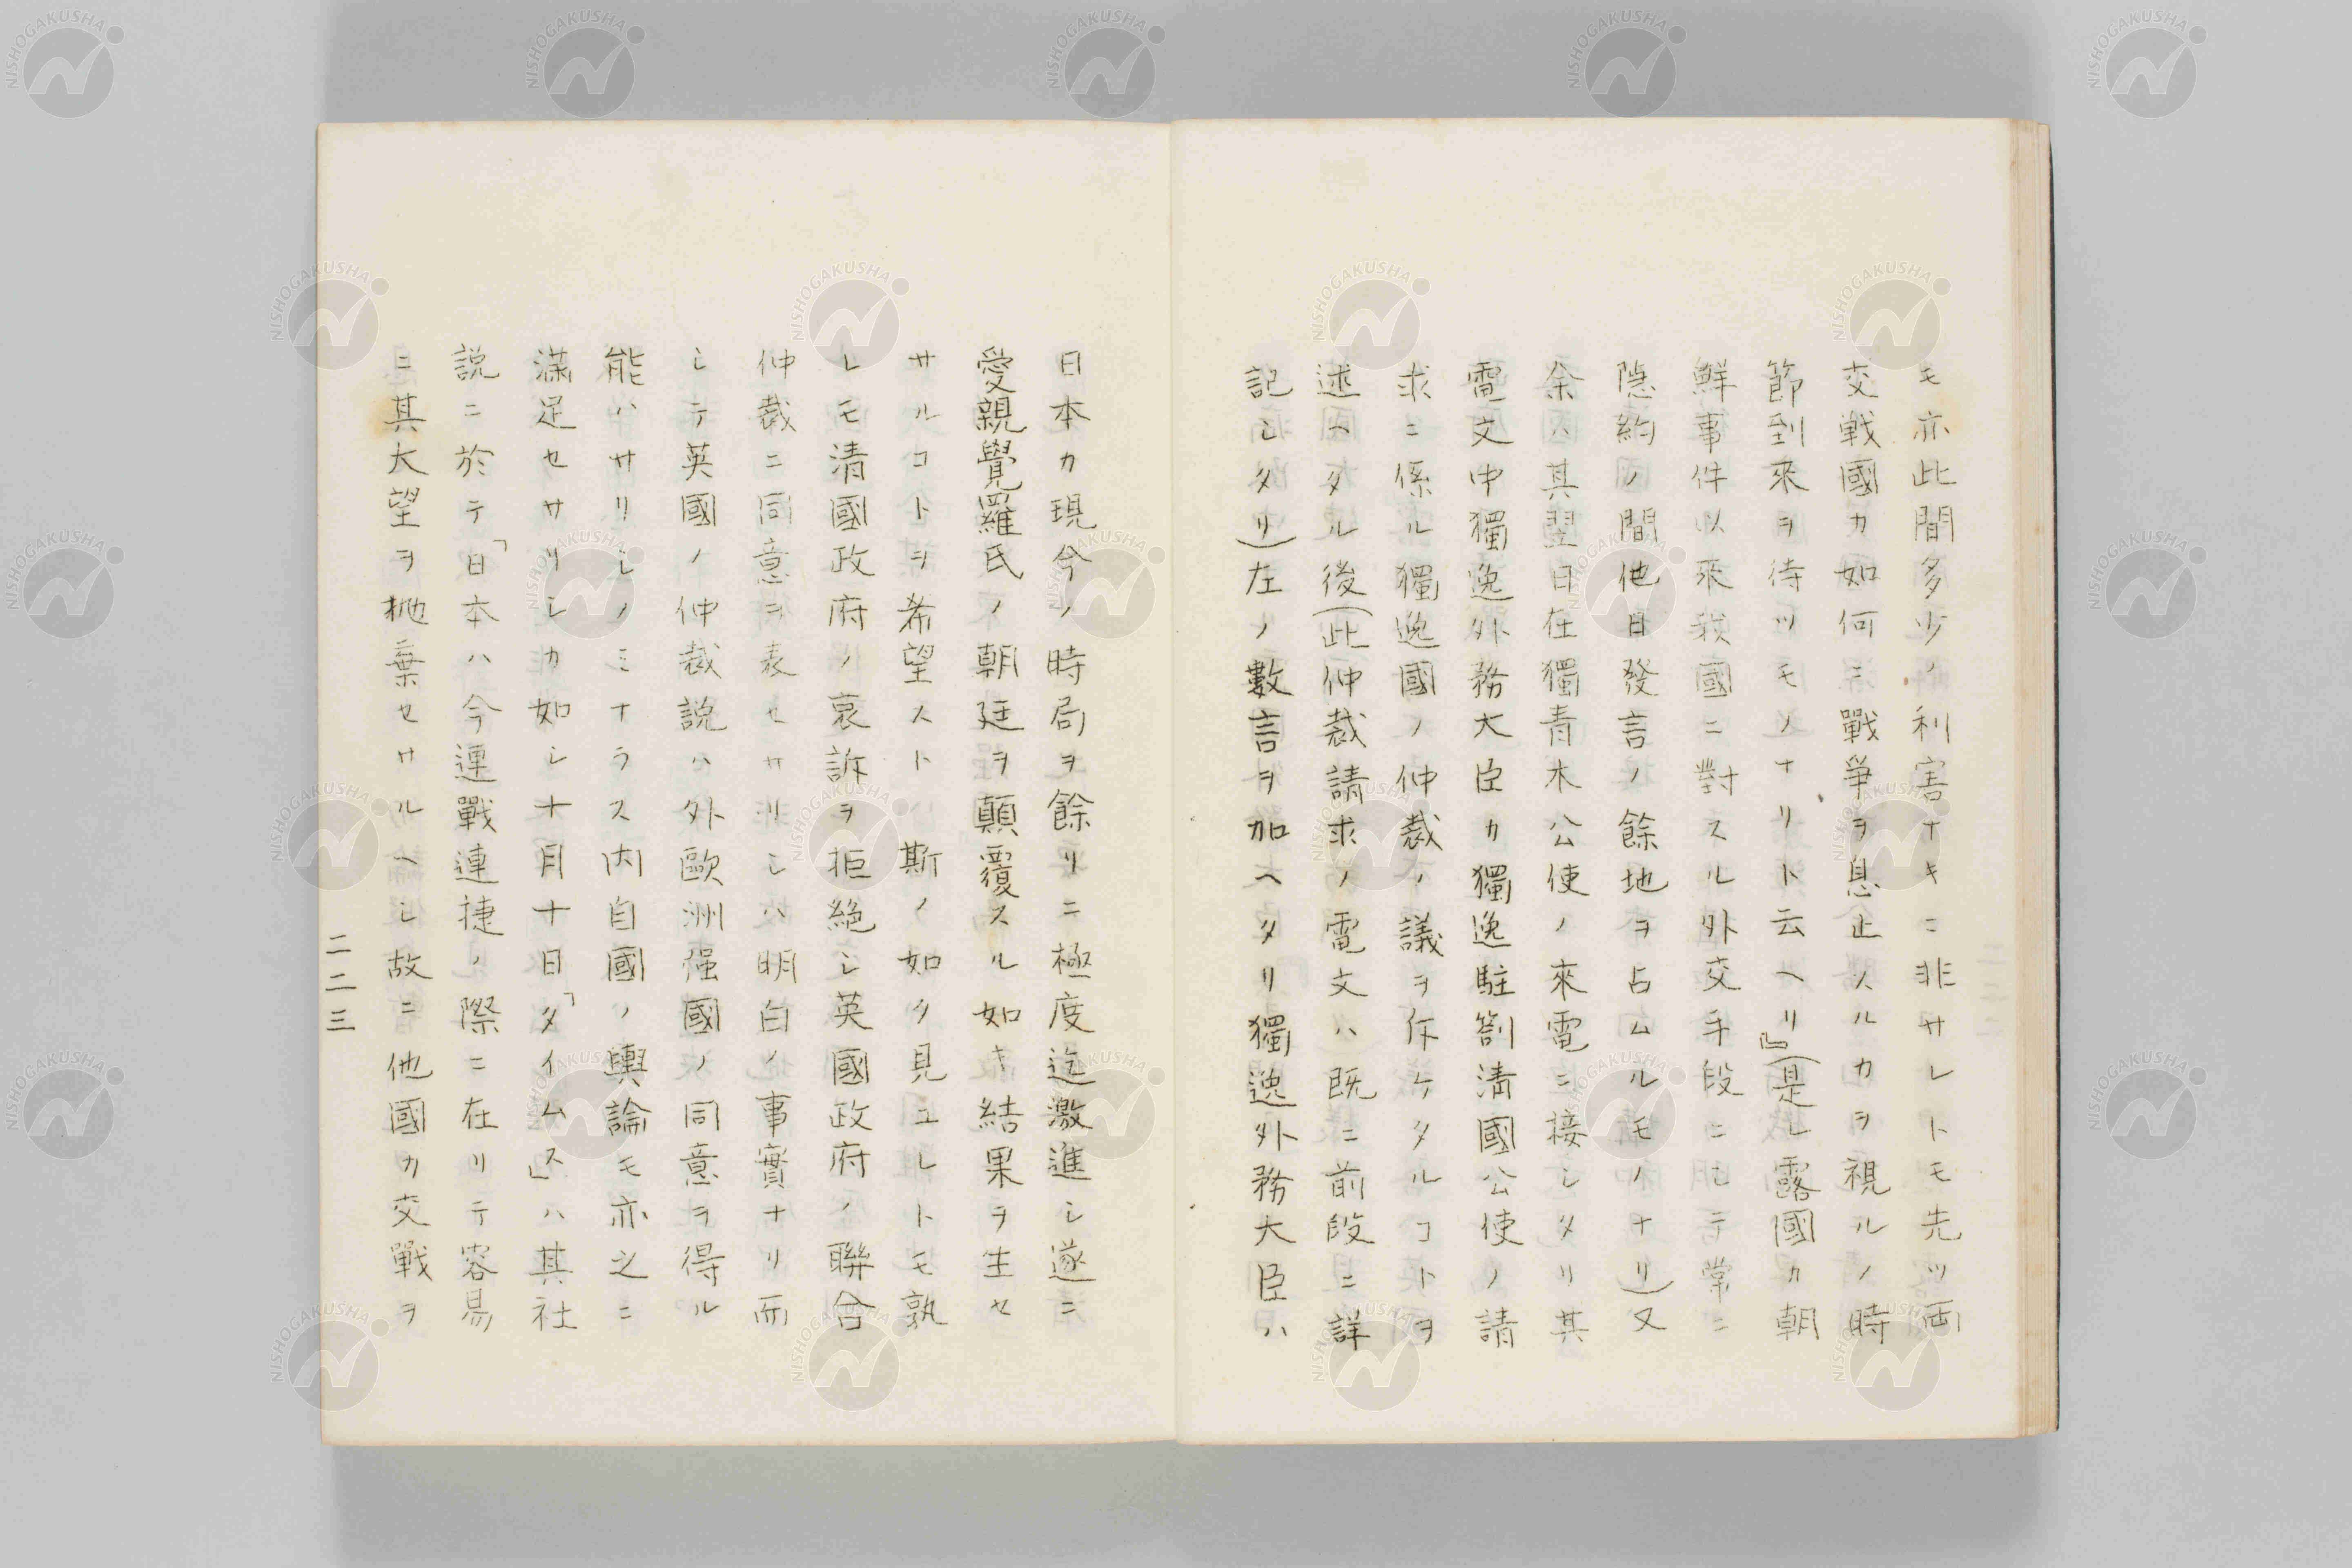 モ亦此間多少ノ利害ナキニ非サレトモ先ツ両
交戦國カ如何ニ戰爭ヲ息止スルカヲ視ルノ時
節到來ヲ待ツモノナリト云ヘリ』(是レ露國カ朝
鮮事件以來我國ニ對スル外交手段ニシテ常ニ
隠約ノ間他日發言ノ餘地ヲ占ムルモノナリ)又
余ハ其翌日在獨青木公使ノ來電ニ接シタリ其
電文中獨逸外務大臣カ獨逸駐劄清國公使ノ請
求ニ係ル獨逸國ノ仲裁ノ議ヲ斥ケタルコトヲ
述ヘタル後(此仲裁請求ノ電文ハ既ニ前段ニ詳
記シタリ)左ノ數言ヲ加ヘタリ獨逸外務大臣ハ
日本カ現今ノ時局ヲ餘リニ極度迄激進シ遂ニ
愛親覺羅氏ノ朝廷ヲ顛覆スル如キ結果ヲ生セ
サルコトヲ希望スト 斯ノ如ク見ユレトモ孰
レモ清國政府ノ哀訴ヲ拒絶シ英國政府ノ聯合
仲裁ニ同意ヲ表セサリシハ明白ノ事實ナリ而
シテ英國ノ仲裁説ハ外歐洲强國ノ同意ヲ得ル
能ハサリシノミナラス内自國ノ輿論モ亦之ニ
滿足セサリシカ如シ十月十日「タイムス」ハ其社
説ニ於テ「日本ハ今連戰連捷ノ際ニ在リテ容易
ニ其大望ヲ抛棄セサルヘシ故ニ他國カ交戰ヲ
二二三
NISHOGAKUSHA